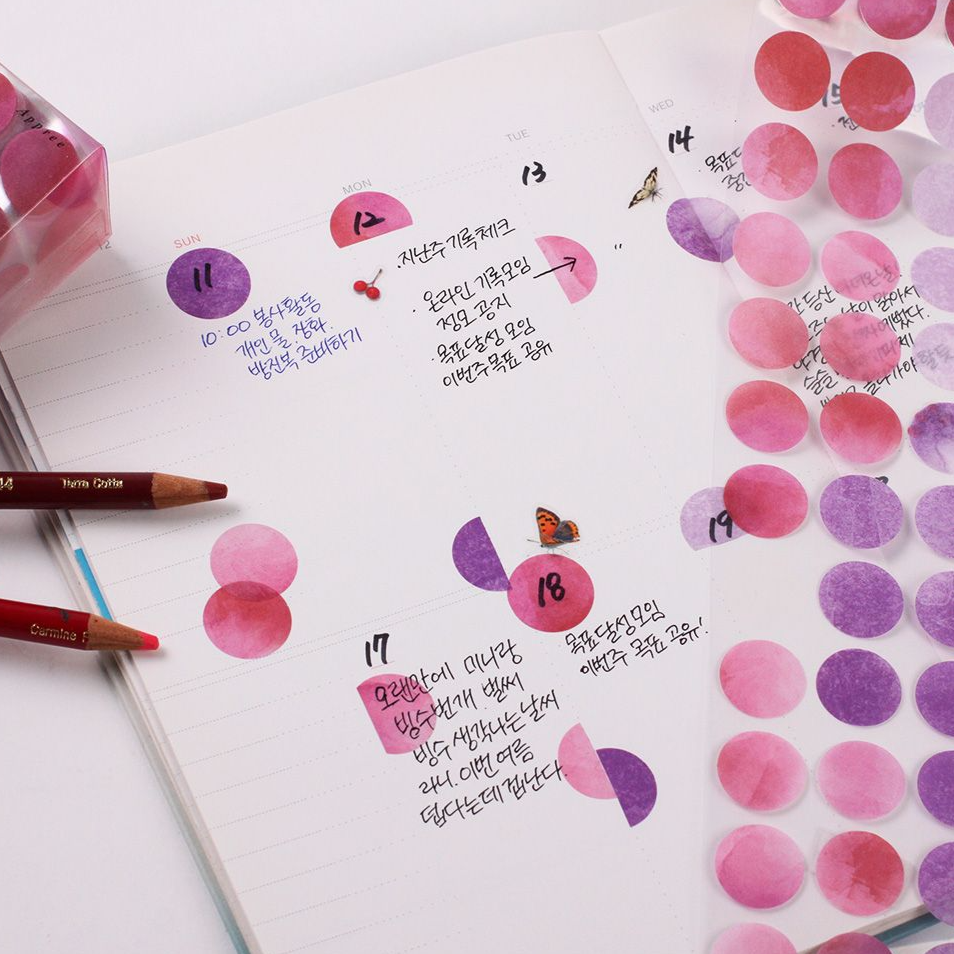 Appree
12
SUN
MON
TUE
WED
11
12
13
14
15
10:00 봉사활동
개인 물, 장화,
방진복 준비하기
.지난주 기록체크
· 온라인 기록모임
정모 공지
·목표달성 모임
이번주 목표 공유
"
목표
Terra Cotta
Carmine
17
18
19
오랜만에 미나랑
빙수번개 벌써
빙수 생각나는 날씨
라니. 이번 여름
덥다는데 겁난다.
목표달성모임
이번주 목표 공유!
등산